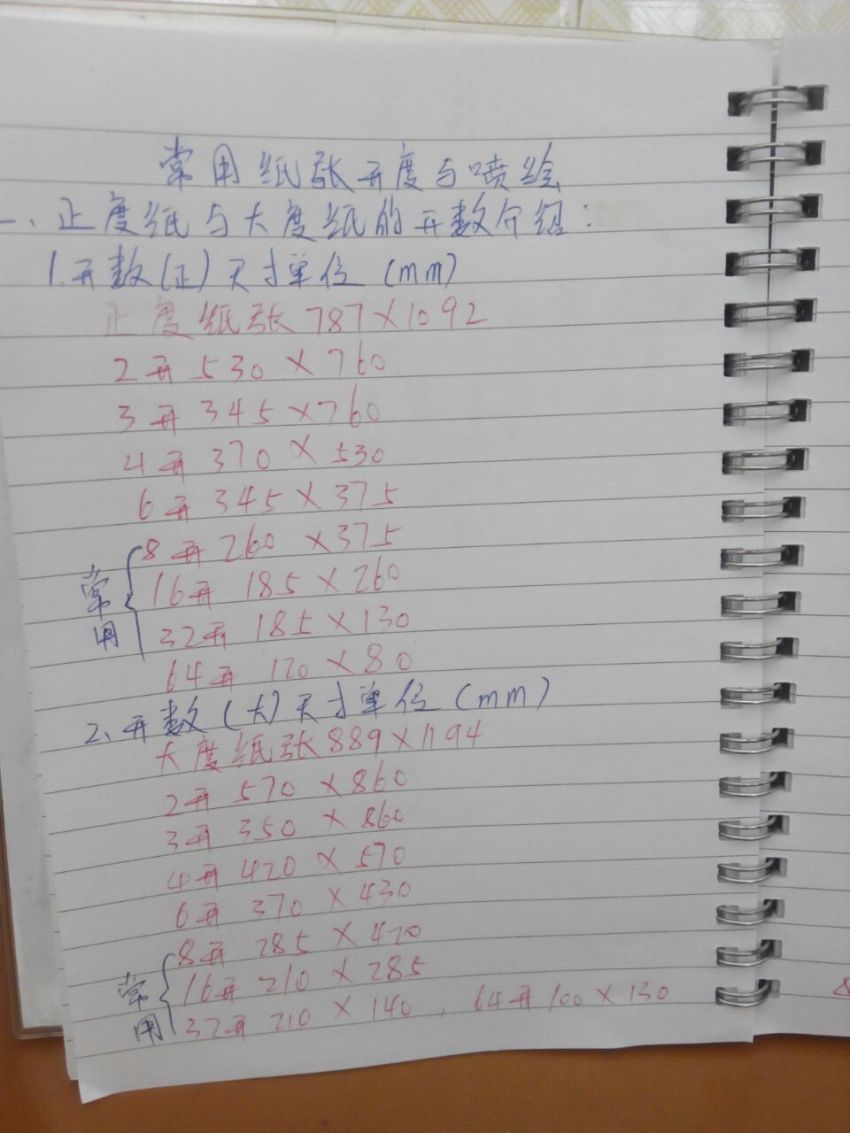 常用纸张开度与喷绘
一、正度纸与大度纸的开数介绍:
1.开数(正)尺寸单位(mm)
正度纸张 787×1092
2开 530×760
3开 345×760
4开 370×530
6开 345×375
常用{8开 260×375
16开 185×260
32开 185×130
64开 120×80
2、开数(大)尺寸单位(mm)
大度纸张889×1194
2开 570×860
3开 350×860
4开 420×570
6开 370×430
常用{8开 285×420
16开 210×285
32开 210×140，64开 100×130